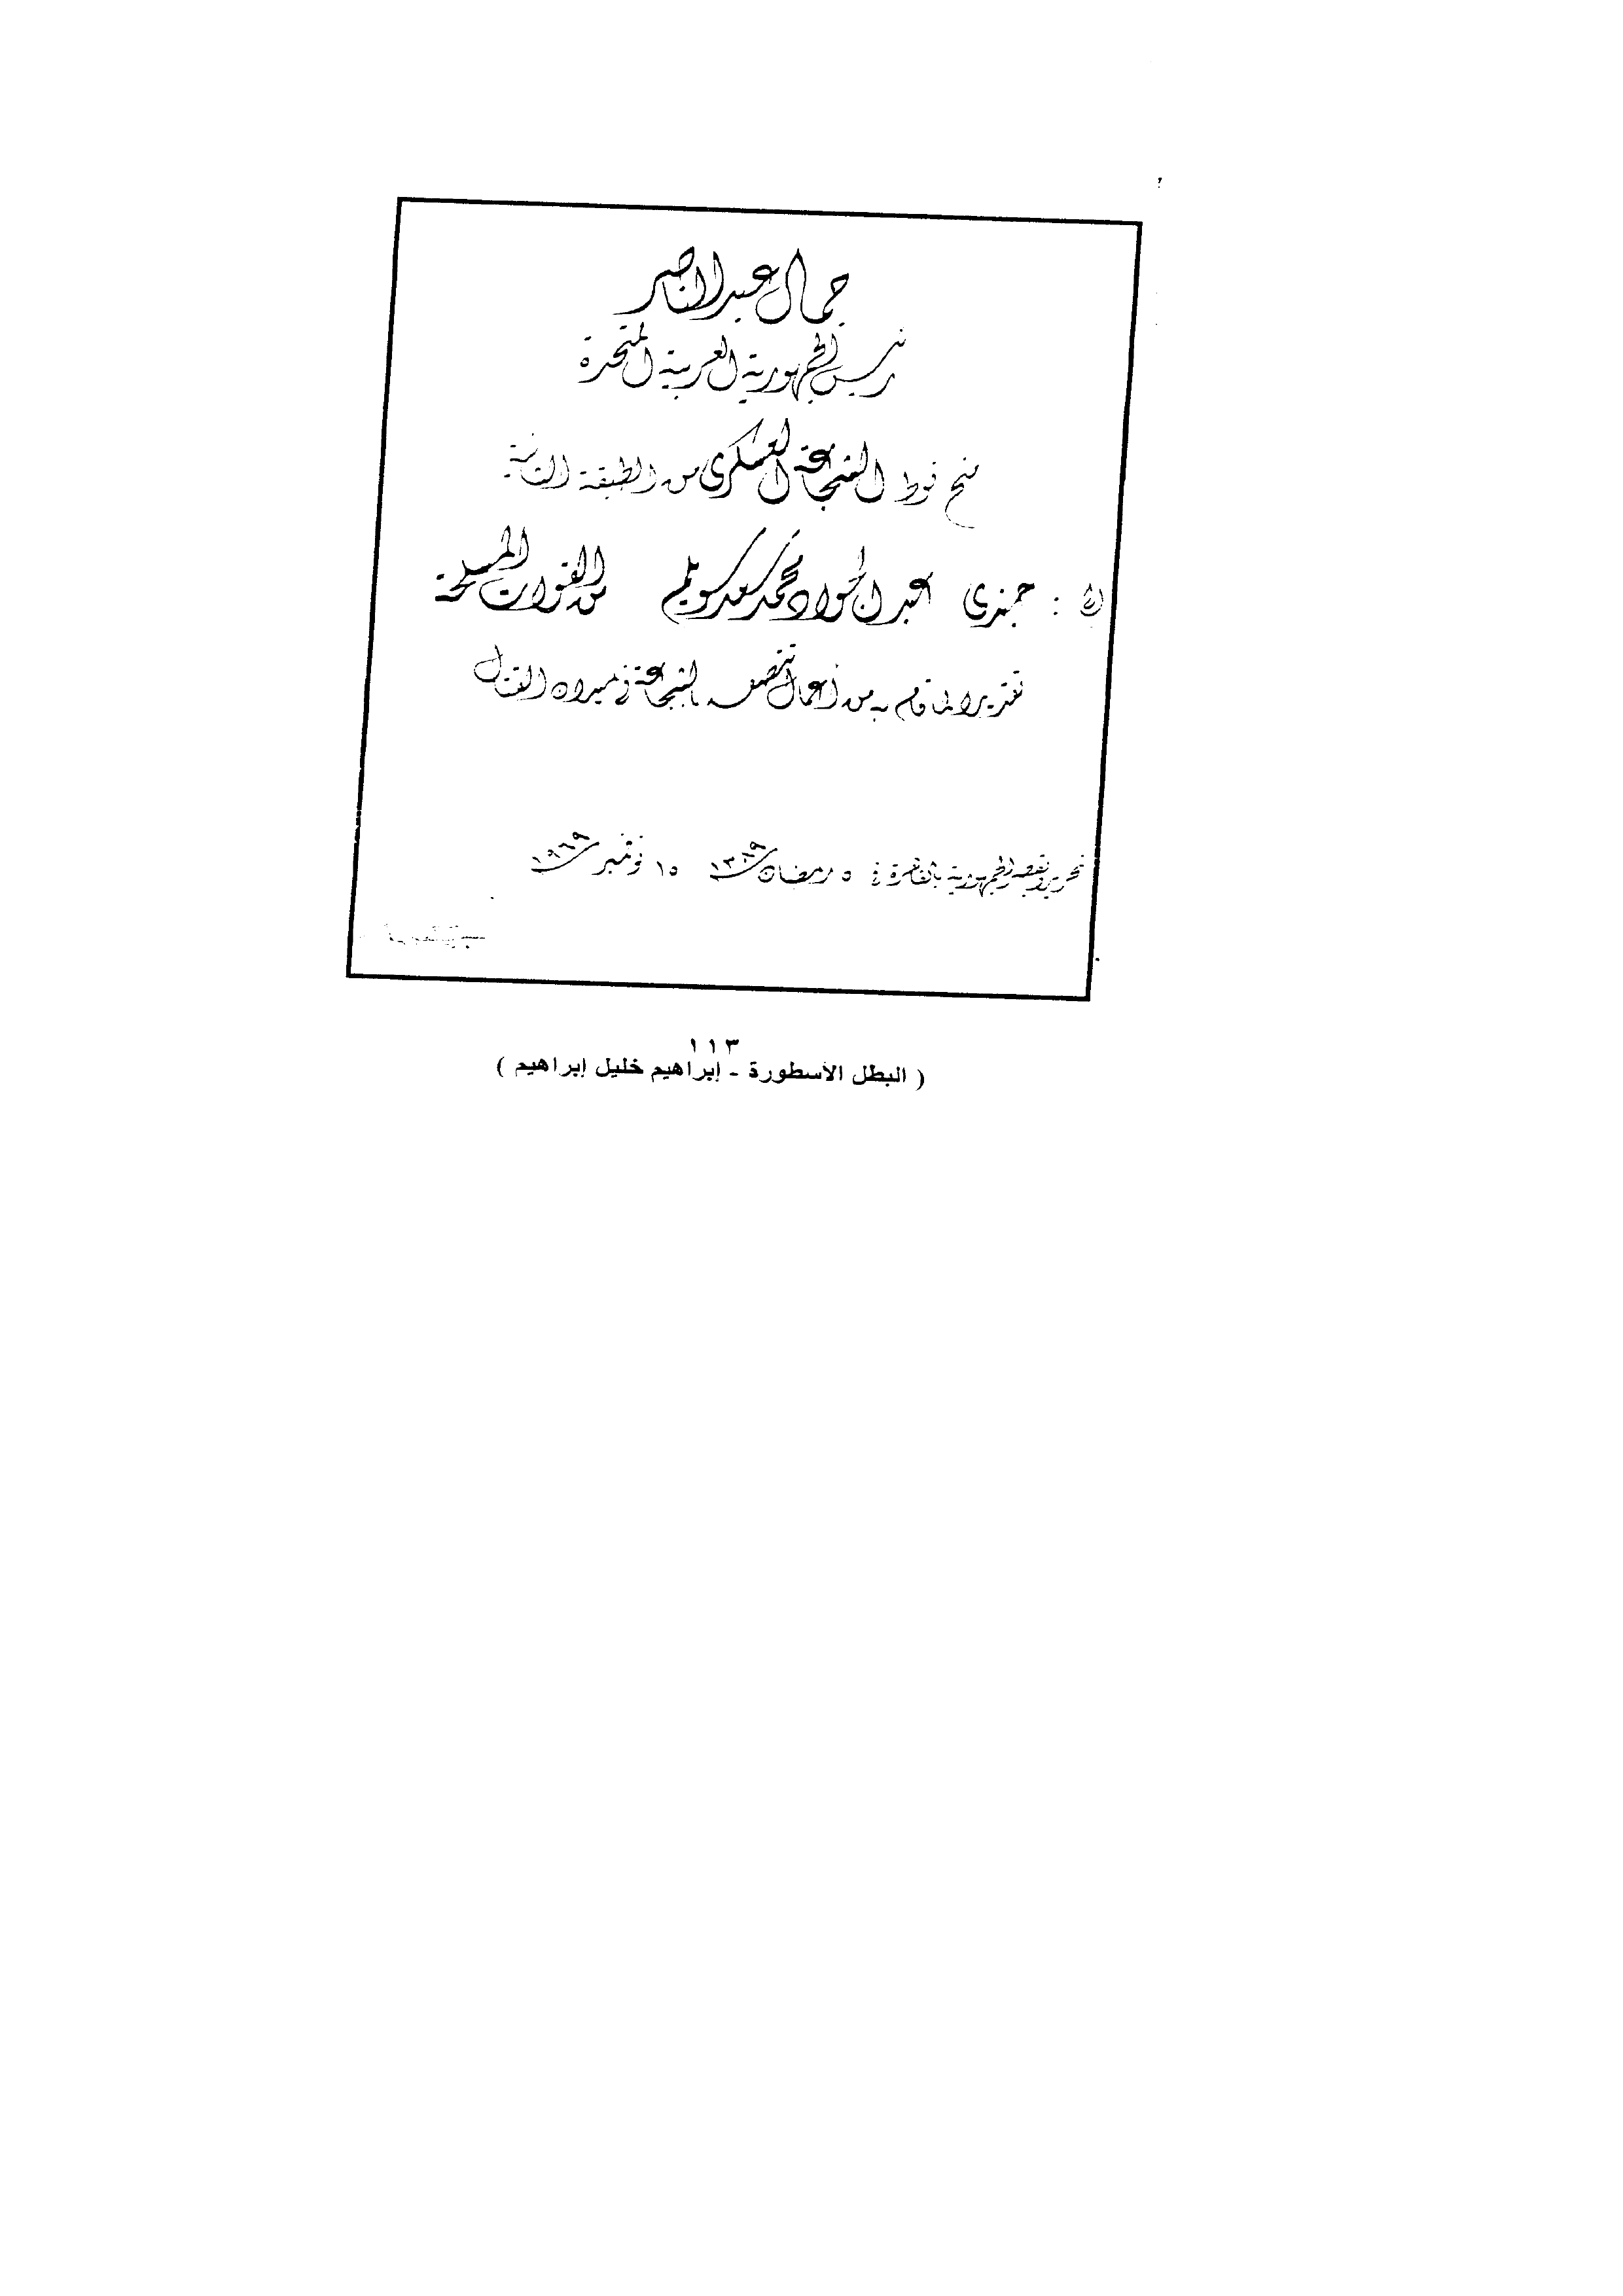 جمال عبد الناصر
رئيس الجمهورية العربية المتحدة
منح نوط الشجاعة العسكرى من الطبقة الثانية
إلى : جندى عبد الجواد محمد سعد سويلم من القوات المسلحة
تقديرا لما قام به من أعمال تتصف بالشجاعة فى ميدان القتال
تحريرا بقصر الجمهورية بالقاهرة فى ٥ رمضان ١٣٨٩ ١٥ نوفمبر ١٩٦٩
١١٣
( البطل الأسطورة - إبراهيم خليل إبراهيم )